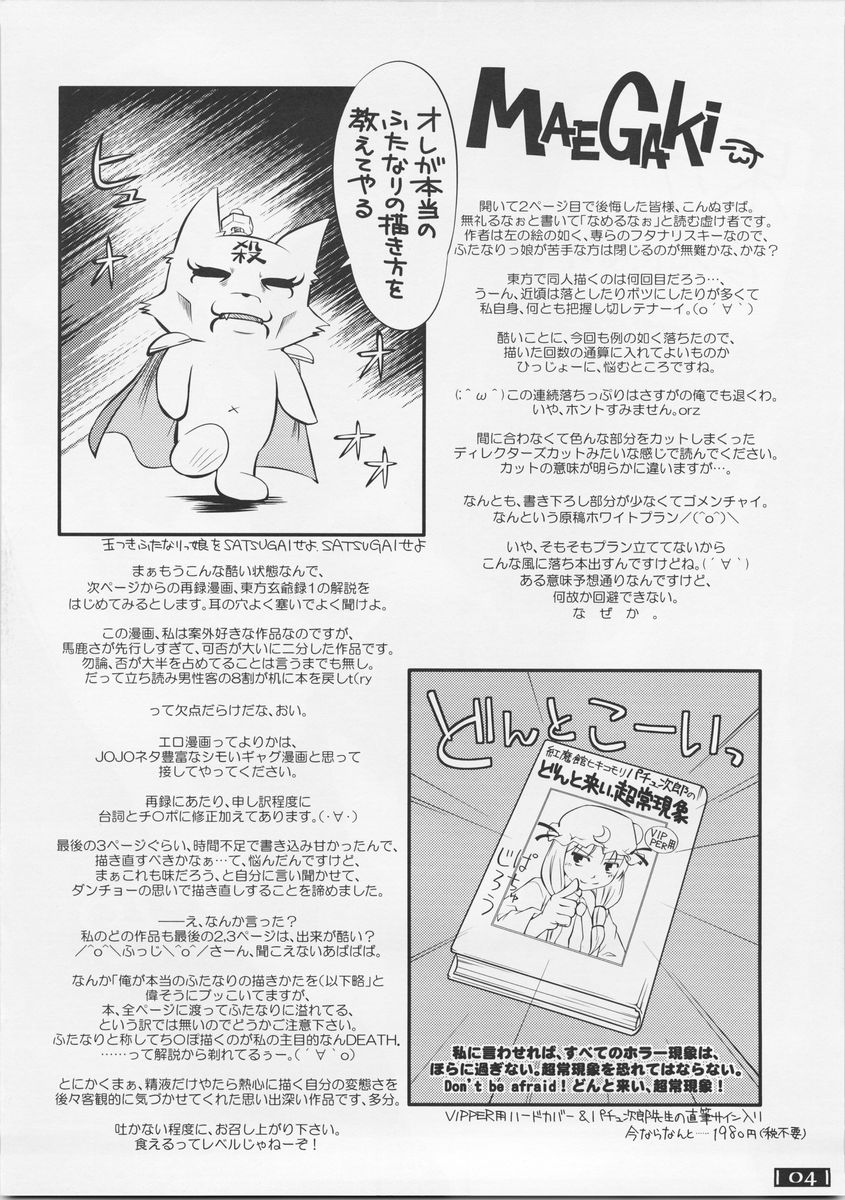 MAEGAKi
開いて2ページ目で後悔した皆様、こんぬずば。
無礼るなぉと書いて「なめるなぉ」と読む虚け者です。
作者は左の絵の如く、専らのフタナリスキーなので、
ふたなりっ娘が苦手な方は閉じるのが無難かな、かな?
東方で同人描くのは何回目だろう…、
うーん、近頃は落としたりボツにしたりが多くて
私自身、何とも把握し切レテナーイ。(o´∀`)
酷いことに、今回も例の如く落ちたので、
描いた回数の通算に入れてよいものか
ひっじょーに、悩むところですね。
(;^ω^)この連続落ちっぷりはさすがの俺でも退くわ。
いや、ホントすみません。orz
間に合わなくて色んな部分をカットしまくった
ディレクターズカットみたいな感じで読んでください。
カットの意味が明らかに違いますが…。
なんとも、書き下ろし部分が少なくてゴメンチャイ。
なんという原稿ホワイトプラン/(^o^)\
いや、そもそもプラン立ててないから
こんな風に落ち本出すんですけどね。(´∀`)
ある意味予想通りなんですけど、
何故か回避できない。
なぜか。
オレが本当の
ふたなりの描き方を
教えてやる
殺
ヒュ
オ
オ
オ
玉つきふたなりっ娘をSATSUGAIせよ.SATSUGAIせよ
まぁもうこんな酷い状態なんで、
次ページからの再録漫画、東方玄爺録1の解説を
はじめてみるとします。耳の穴よく塞いでよく聞けよ。
この漫画、私は案外好きな作品なのですが、
馬鹿さが先行しすぎて、可否が大いに二分した作品です。
勿論、否が大半を占めてることは言うまでも無し。
だって立ち読み男性客の8割が机に本を戻しt(ry
って欠点だらけだな、おい。
エロ漫画ってよりかは、
JOJOネタ豊富なシモいギャグ漫画と思って
接してやってください。
再録にあたり、申し訳程度に
台詞とチ○ポに修正加えてあります。(・∀・)
最後の3ページぐらい、時間不足で書き込み甘かったんで、
描き直すべきかなぁ…って、悩んだんですけど、
まぁこれも味だろう、と自分に言い聞かせて、
ダンチョーの思いで描き直しすることを諦めました。
――え、なんか言った?
私のどの作品も最後の2,3ページは、出来が酷い?
/^o^\ふっじ\^o^/さーん、聞こえないあばばば。
なんか「俺が本当のふたなりの描きかたを(以下略)」と
偉そうにブッこいてますが、
本、全ページに渡ってふたなりに溢れてる、
という訳では無いのでどうかご注意下さい。
ふたなりと称してち○ぽ描くのが私の主目的なんDEATH.
……って解説から剃れてるぅー。(´∀`o)
とにかくまぁ、精液だけやたら熱心に描く自分の変態さを
後々客観的に気づかせてくれた思い出深い作品です、多分。
吐かない程度に、お召し上がり下さい。
食えるってレベルじゃねーぞ!
どんとこーいっ
紅魔館ヒキコモリパチュ次郎の
どんと来い、超常現象
VIP
PER用
ぱちゅ
じろう
私に言わせれば、すべてのホラー現象は、
ほらに過ぎない。超常現象を恐れてはならない。
Don't be afraid!どんと来い、超常現象!
VIPPER用ハードカバー&パチュ次郎先生の直筆サイン入り
今ならなんと……1980円(税不要)
04